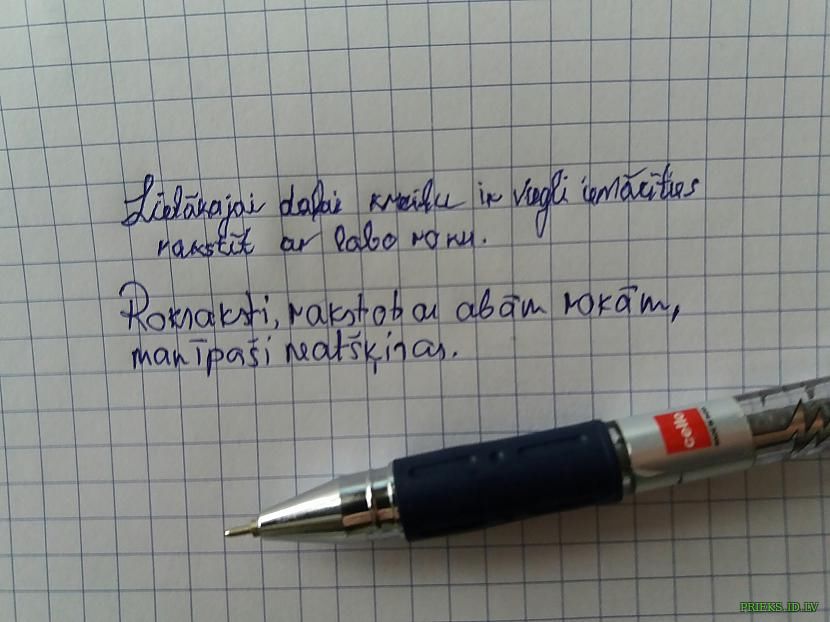 Lielākajai daļai kreiļu ir viegli iemācīties
rakstīt ar labo roku.
Rokraksti, rakstot ar abām rokām,
manī paši neatšķiras.
cello
PRIEKS.ID.LV